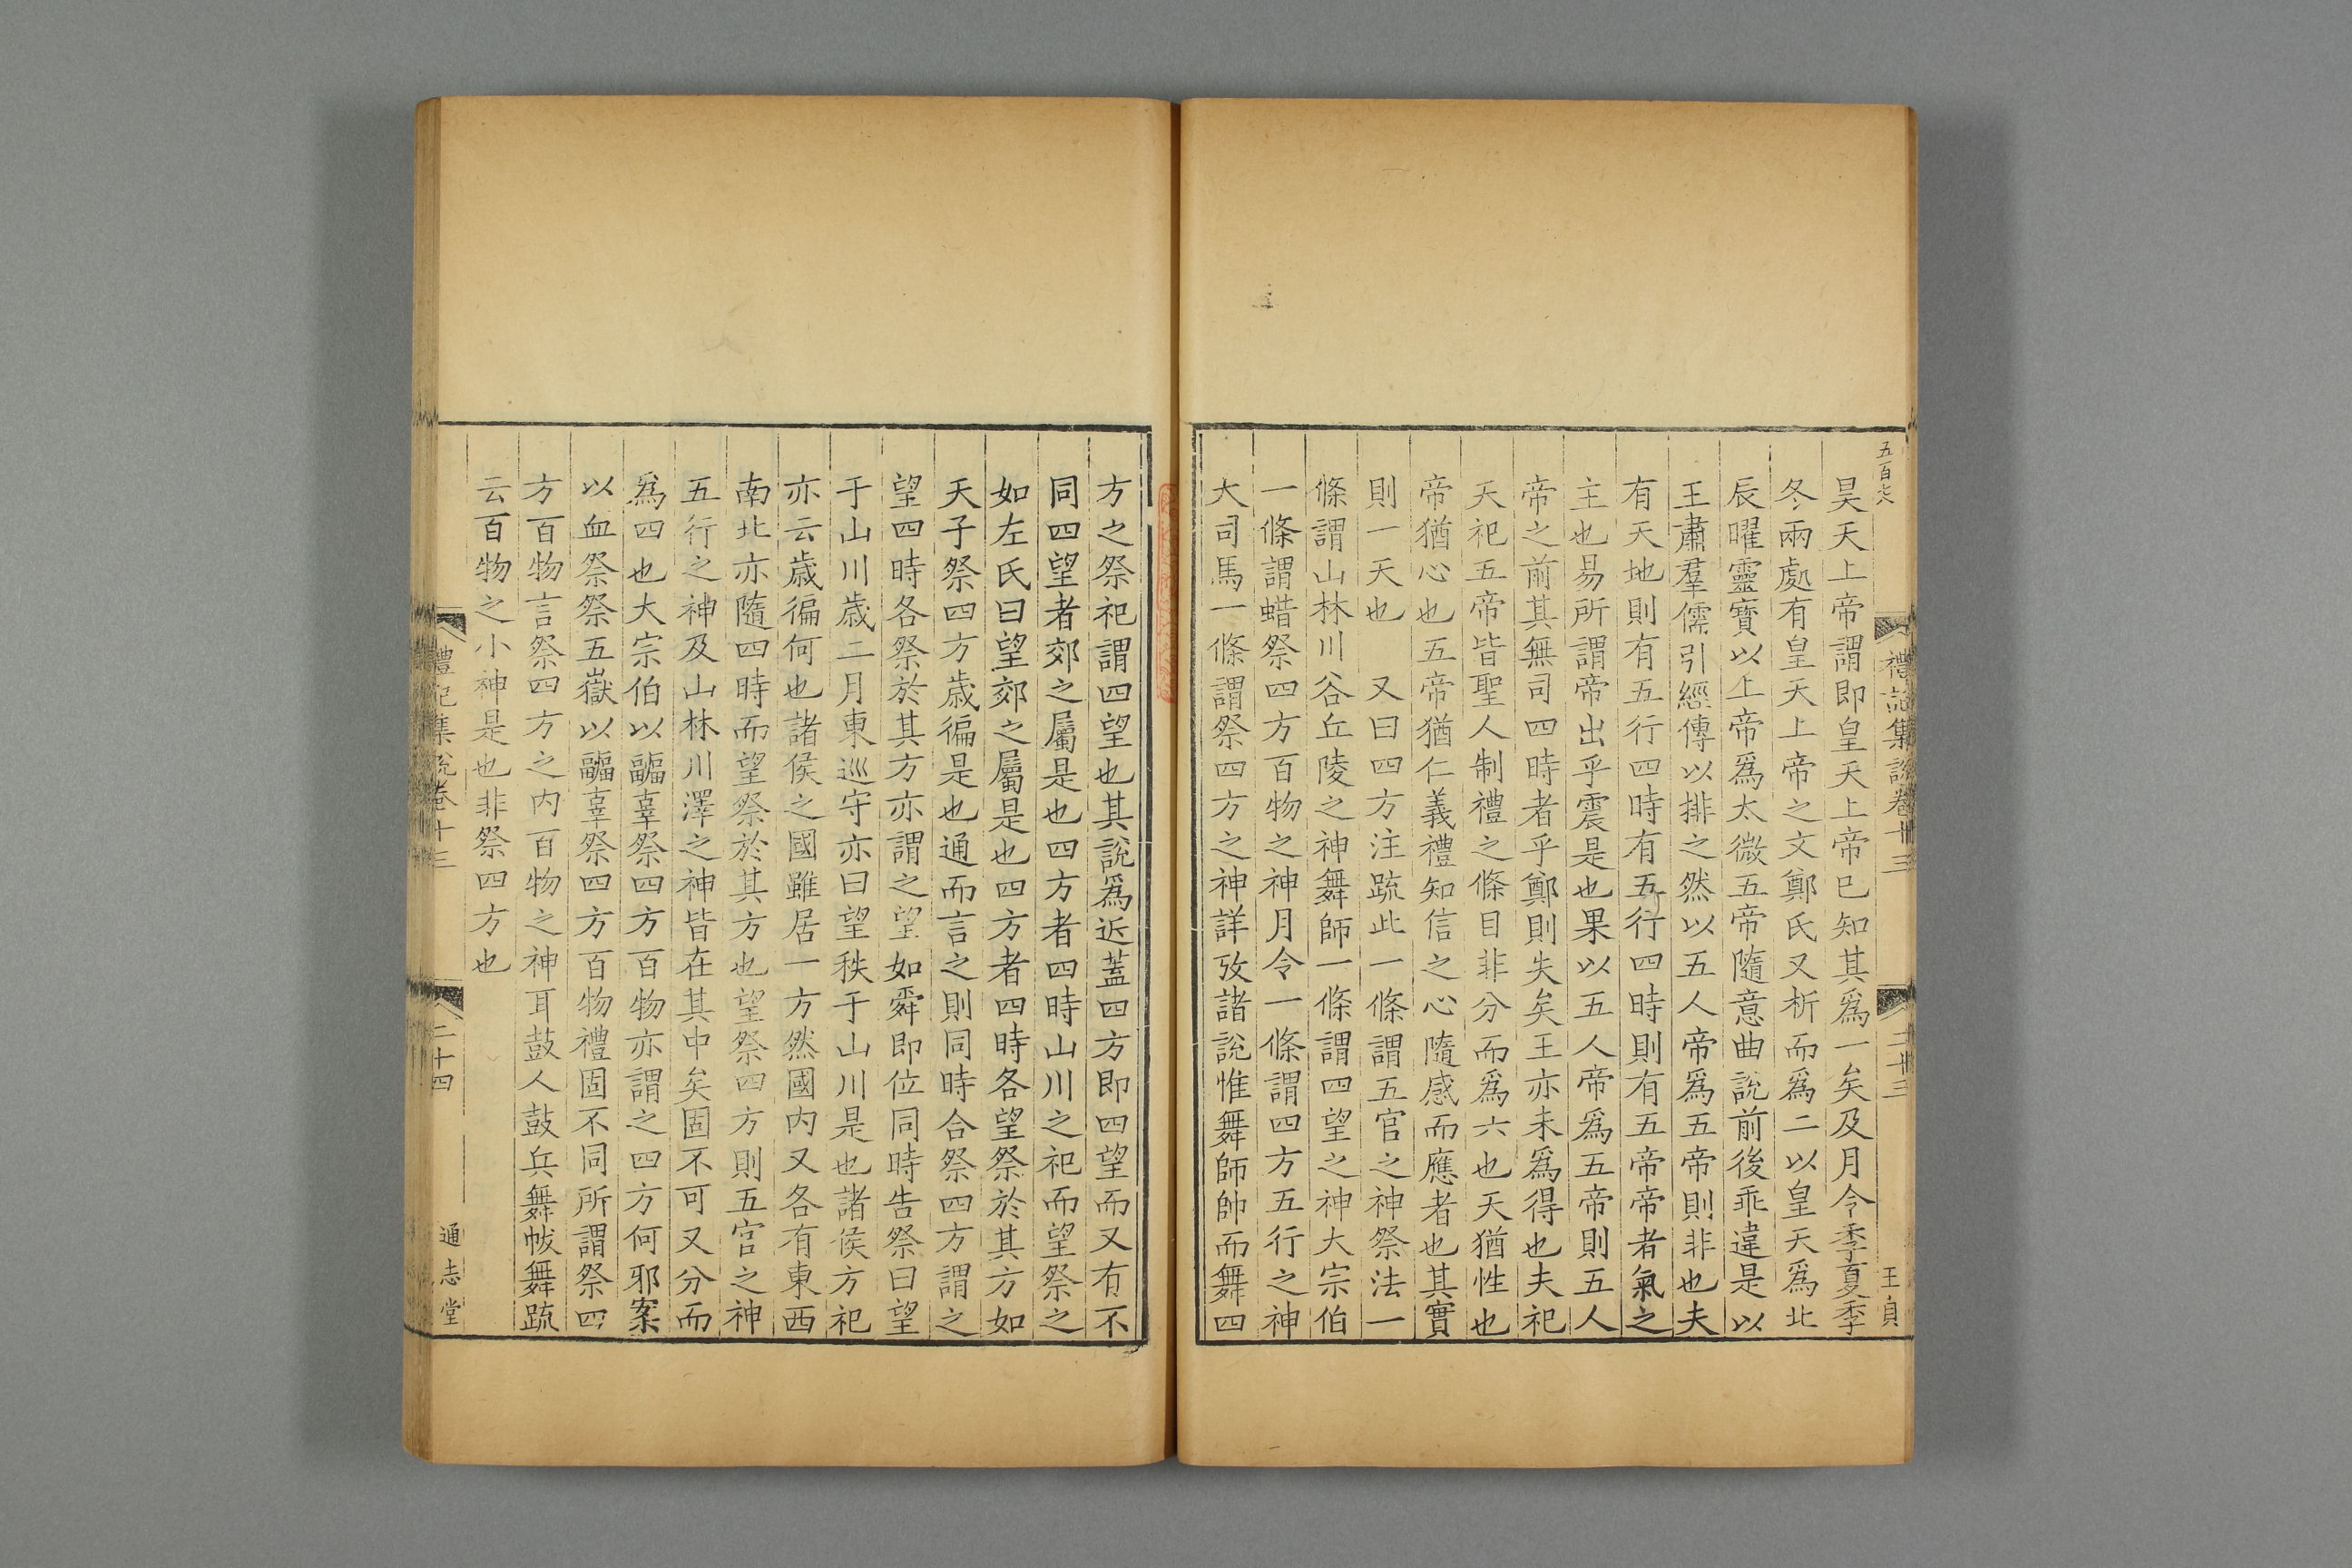 五百六
禮記集說卷十三
二十三
王貞
昊天上帝謂即皇天上帝已知其爲一矣及月令季夏季
冬兩處有皇天上帝之文鄭氏又析而爲二以皇天爲北
辰曜靈寶以上帝爲太微五帝隨意曲說前後乖違是以
王肅羣儒引經傳以排之然以五人帝爲五帝則非也夫
有天地則有五行四時有五行四時則有五帝帝者氣之
主也易所謂帝出乎震是也果以五人帝爲五帝則五人
帝之前其無司四時者乎鄭則失矣王亦未爲得也夫祀
天祀五帝皆聖人制禮之條目非分而爲六也天猶性也
帝猶心也五帝猶仁義禮知信之心隨感而應者也其實
則一天也　又曰四方注疏此一條謂五官之神祭法一
條謂山林川谷丘陵之神舞師一條謂四望之神大宗伯
一條謂蜡祭四方百物之神月令一條謂四方五行之神
大司馬一條謂祭四方之神詳攷諸說惟舞師帥而舞四
方之祭祀謂四望也其說爲近蓋四方即四望而又有不
同四望者郊之屬是也四方者四時山川之祀而望祭之
如左氏曰望郊之屬是也四方者四時各望祭於其方如
天子祭四方歲徧是也通而言之則同時合祭四方謂之
望四時各祭於其方亦謂之望如舜即位同時告祭曰望
于山川歲二月東巡守亦曰望秩于山川是也諸侯方祀
亦云歲徧何也諸侯之國雖居一方然國內又各有東西
南北亦隨四時而望祭於其方也望祭四方則五官之神
五行之神及山林川澤之神皆在其中矣固不可又分而
爲四也大宗伯以疈辜祭四方百物亦謂之四方何邪案
以血祭祭五嶽以疈辜祭四方百物禮固不同所謂祭四
方百物言祭四方之內百物之神耳鼓人鼓兵舞帗舞疏
云百物之小神是也非祭四方也
禮記集說卷十三
二十四
通志堂